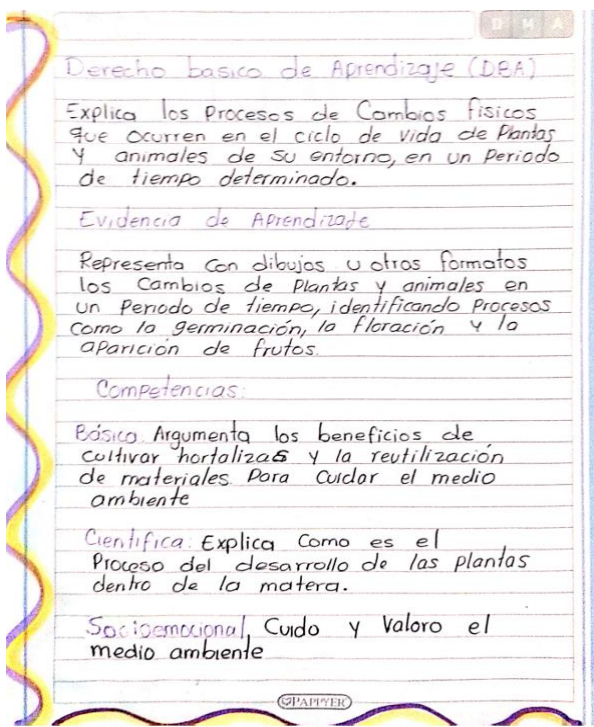 D M A
Derecho basico de Aprendizaje (DBA)
Explica los Procesos de Cambios físicos
que ocurren en el ciclo de vida de Plantas
y animales de su entorno, en un Periodo
de tiempo determinado.
Evidencia de Aprendizaje
Representa con dibujos u otros formatos
los Cambios de Plantas y animales en
un Periodo de tiempo, identificando Procesos
como la germinación, la floración y la
aparición de frutos.
Competencias:
Básica: Argumenta los beneficios de
cultivar hortalizas y la reutilización
de materiales Para cuidar el medio
ambiente
Científica: Explica Como es el
Proceso del desarrollo de las plantas
dentro de la matera.
Socioemocional, Cuido y Valoro el
medio ambiente
PAPPYER